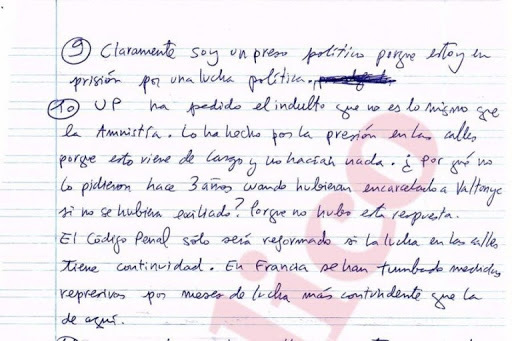 9 Claramente soy un preso político porque estoy en
prisión por una lucha política.
10 UP ha pedido el indulto que no es lo mismo que
la Amnistía. Lo ha hecho por la presión en las calles
porque esto viene de largo y no hacían nada. ¿Por qué no
lo pidieron hace 3 años cuando hubieran encarcelado a Valtonyc
si no se hubiera exiliado? Porque no hubo esta respuesta.
El Código Penal solo será reformado si la lucha en las calles
tiene continuidad. En Francia se han tumbado medidas
represivas por meses de lucha más contundente que la
de aquí.
lico